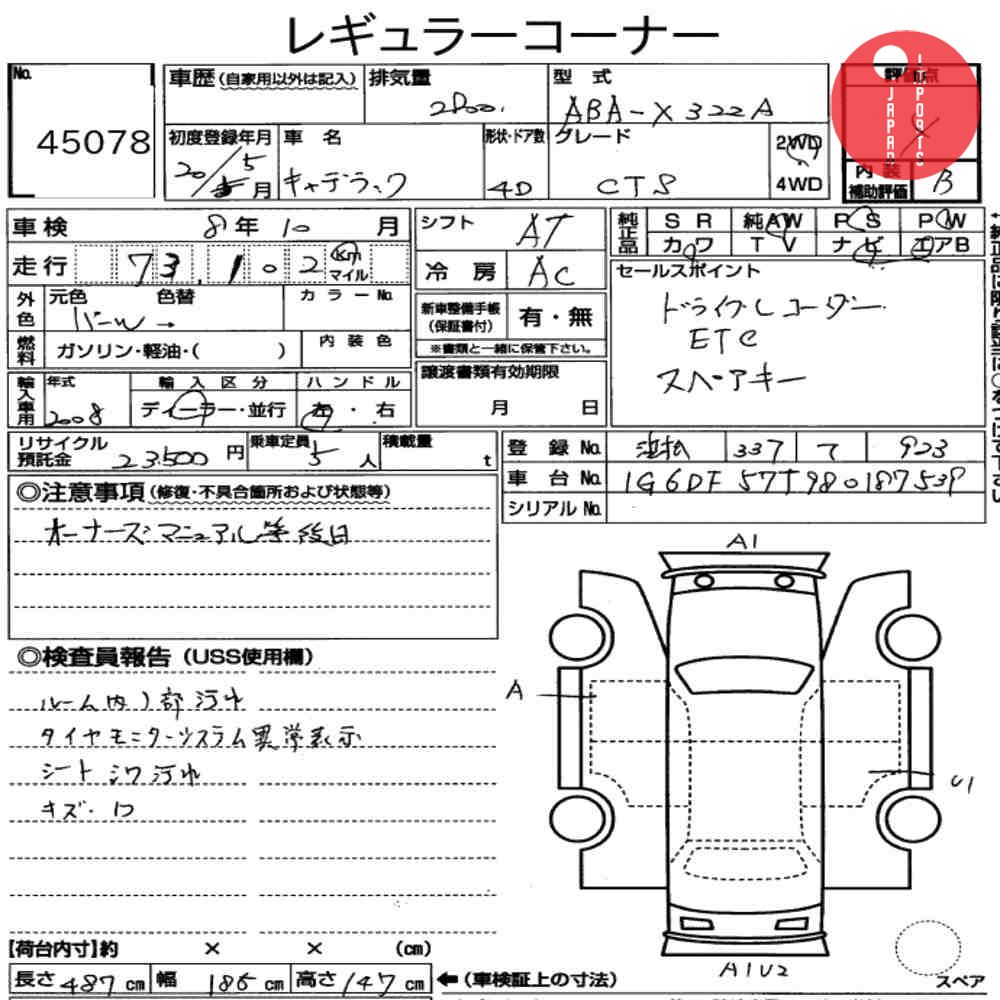 レギュラーコーナー
No.
45078
車歴 (自家用以外は記入)
排気量
2800.
型 式
ABA-X322A
評価点
X
JAPAN
IMPORTS
初度登録年月
20/5月
車 名
キャデラック
形状・ドア数
4D
グレード
CTS
2WD
4WD
内 装
補助評価
B
車検
8年10月
走行
73,102
Km
マイル
シフト
AT
冷 房
AC
純正品
S R
純AW
P S
P W
カワ
T V
ナビ
エアB
外色
元色
色替
カラーNo.
パール→
燃料
ガソリン・軽油・( )
内 装 色
新車整備手帳
(保証書付)
有・無
※書類と一緒に保管下さい。
セールスポイント
ドライブレコーダー
ETC
スペアキー
輸入車用
年式
2008
輸 入 区 分
ディーラー・並行
ハ ン ド ル
左・右
譲渡書類有効期限
月 日
リサイクル
預託金
23500円
乗車定員
5人
積載量
t
登 録 No.
浜松 337 て 923
車 台 No.
1G6DF57T980187539
シリアルNo.
◎注意事項 (修復・不具合箇所および状態等)
オーナーズマニュアル等後日
◎検査員報告 (USS使用欄)
ルーム内1部汚れ
タイヤモニターシステム異常表示
シートシワ汚れ
キズ・凹
A1
A
U1
A1U2
【荷台内寸】約 × × (cm)
長さ487cm
幅 186cm
高さ147cm
←(車検証上の寸法)
スペア